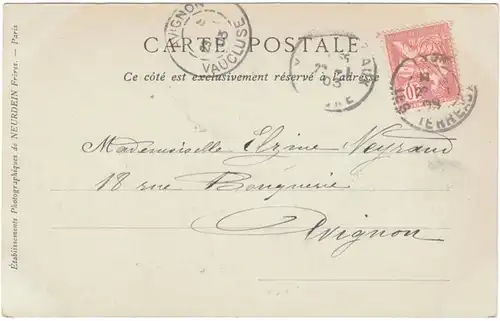 CARTE POSTALE
Ce côté est exclusivement réservé à l'adresse
AVIGNON
03
VAUCLUSE
03
10
TERREAUX
Mademoiselle Elzine Neyrand
18 rue Bonquerie
Avignon
Établissements Photographiques de NEURDEIN Frères. — Paris